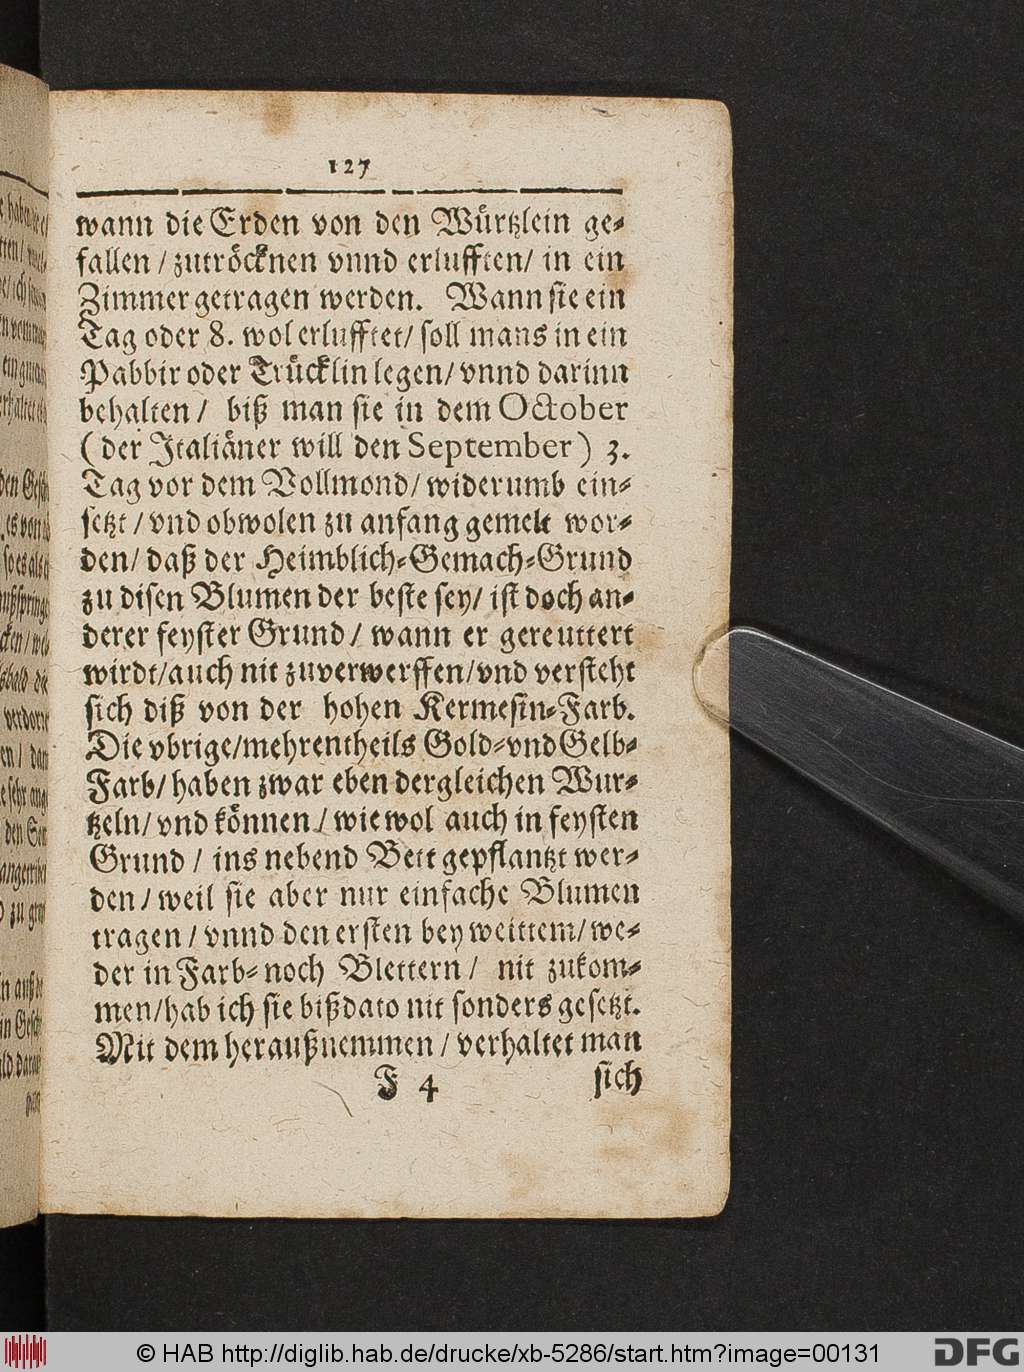 127
wann die Erden von den Würtzlein ge-
fallen / zutröcknen vnnd erlufften / in ein
Zimmer getragen werden. Wann sie ein
Tag oder 8. wol erlufftet / soll mans in ein
Pabbir oder Trücklin legen / vnnd darinn
behalten / biß man sie in dem October
( der Italiäner will den September ) 3.
Tag vor dem Vollmond / widerumb ein-
setzt / vnd obwolen zu anfang gemelt wor-
den / daß der Heimblich-Gemach-Grund
zu disen Blumen der beste sey / ist doch an-
derer feyster Grund / wann er gereuttert
wirdt / auch nit zuverwerffen / vnd versteht
sich diß von der hohen Kermesin-Farb.
Die vbrige / mehrentheils Gold-vnd Gelb-
Farb / haben zwar eben dergleichen Wur-
tzeln / vnd können / wiewol auch in feysten
Grund / ins nebend Bett gepflantzt wer-
den / weil sie aber nur einfache Blumen
tragen / vnnd den ersten bey weittem / we-
der in Farb- noch Blettern / nit zukom-
men / hab ich sie biß dato nit sonders gesetzt.
Mit dem heraußnemmen / verhaltet man
J 4 sich
© HAB http://diglib.hab.de/drucke/xb-5286/start.htm?image=00131
DFG